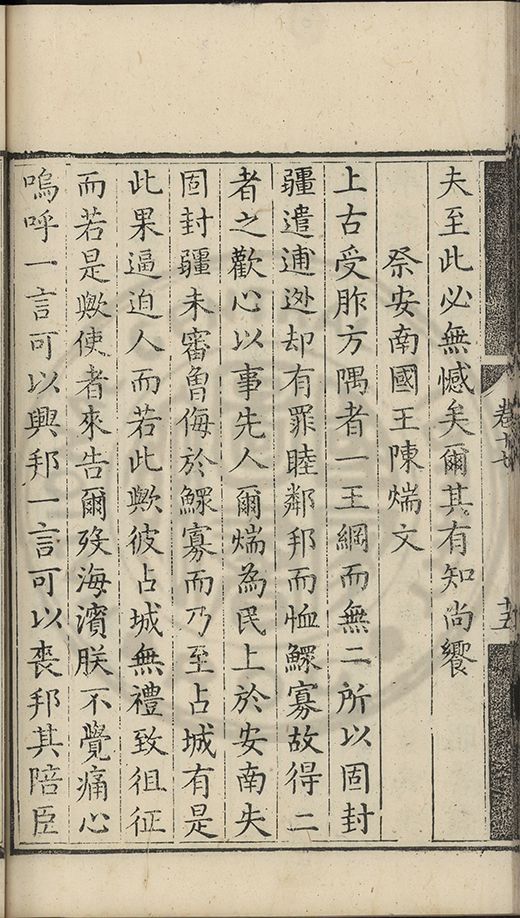 卷十七
十五
夫至此必無憾矣爾其有知尚饗
祭安南國王陳煓文
上古受胙方隅者一王綱而無二所以固封
疆遣逋逃却有罪睦鄰邦而恤鰥寡故得二
者之歡心以事先人爾煓為民上於安南失
固封疆未審曾侮於鰥寡而乃至占城有是
此果逼迫人而若此歟彼占城無禮致徂征
而若是歟使者來告爾殁海濱朕不覺痛心
嗚呼一言可以興邦一言可以喪邦其陪臣